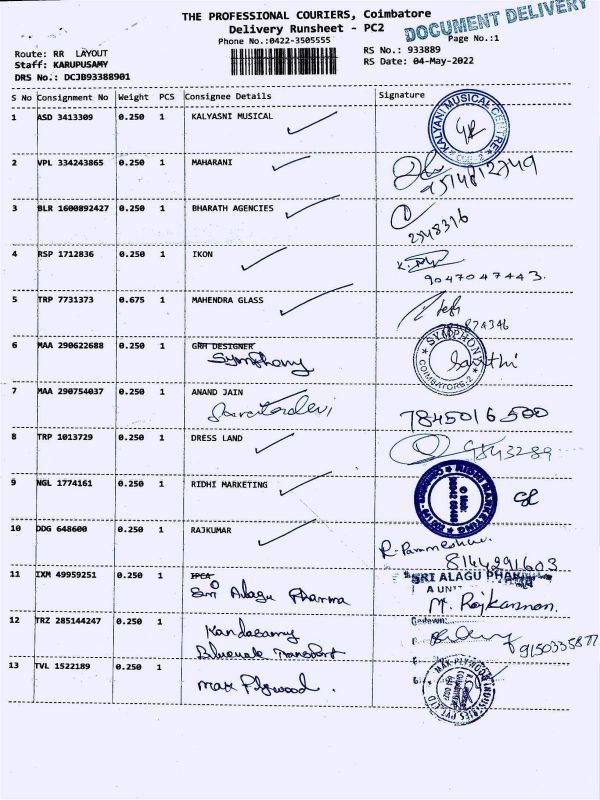 THE PROFESSIONAL COURIERS, Coimbatore
DOCUMENT DELIVERY
Delivery Runsheet - PC2
Phone No.:0422-3505555
Page No.:1
Route: RR LAYOUT
RS No.: 933889
Staff: KARUPUSAMY
RS Date: 04-May-2022
DRS No.: DCJB93388901
S No Consignment No Weight PCS Consignee Details Signature
1 ASD 3413309 0.250 1 KALYASNI MUSICAL
KALYANI MUSICAL CENTRE
2 VPL 334243865 0.250 1 MAHARANI
3 BLR 1600892427 0.250 1 BHARATH AGENCIES
2548316
4 RSP 1712836 0.250 1 IKON
9047047443
5 TRP 7731373 0.675 1 MAHENDRA GLASS
6 MAA 290622688 0.250 1 GRH DESIGNER
Symphony
SYMPHONY
COIMBATORE-2
7 MAA 290754037 0.250 1 ANAND JAIN
7845016500
8 TRP 1013729 0.250 1 DRESS LAND
9843289
9 NGL 1774161 0.250 1 RIDHI MARKETING
RIDHI MARKETING
10 DDG 648600 0.250 1 RAJKUMAR
8144291603
11 IXM 49959251 0.250 1 IPCA
Sri Alagu Pharma
SRI ALAGU PHARMA
A UNIT
M. Rajkannan.
12 TRZ 285144247 0.250 1 Kandasamy
Transport
Godown:
9150335877
13 TVL 1522189 0.250 1 Max Plywood.